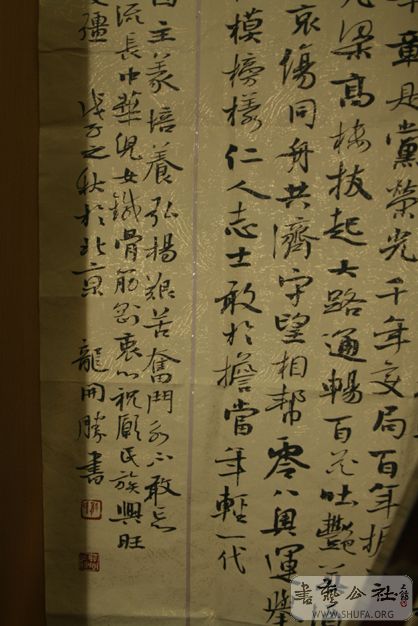 年章是黨榮光千年变局百年
梁高栋拔起大路通暢百花吐艷
哀傷同舟共濟守望相幫零八奥運
模榜樣仁人志士敢於擔當年輕一代
主義培養弘揚艰苦奮鬥永不敢忘
流長中華児女鐵骨筋衷心祝願民族興旺
疆 戊子之秋於北京 龍開勝書
書藝公社
WWW.SHUFA.ORG